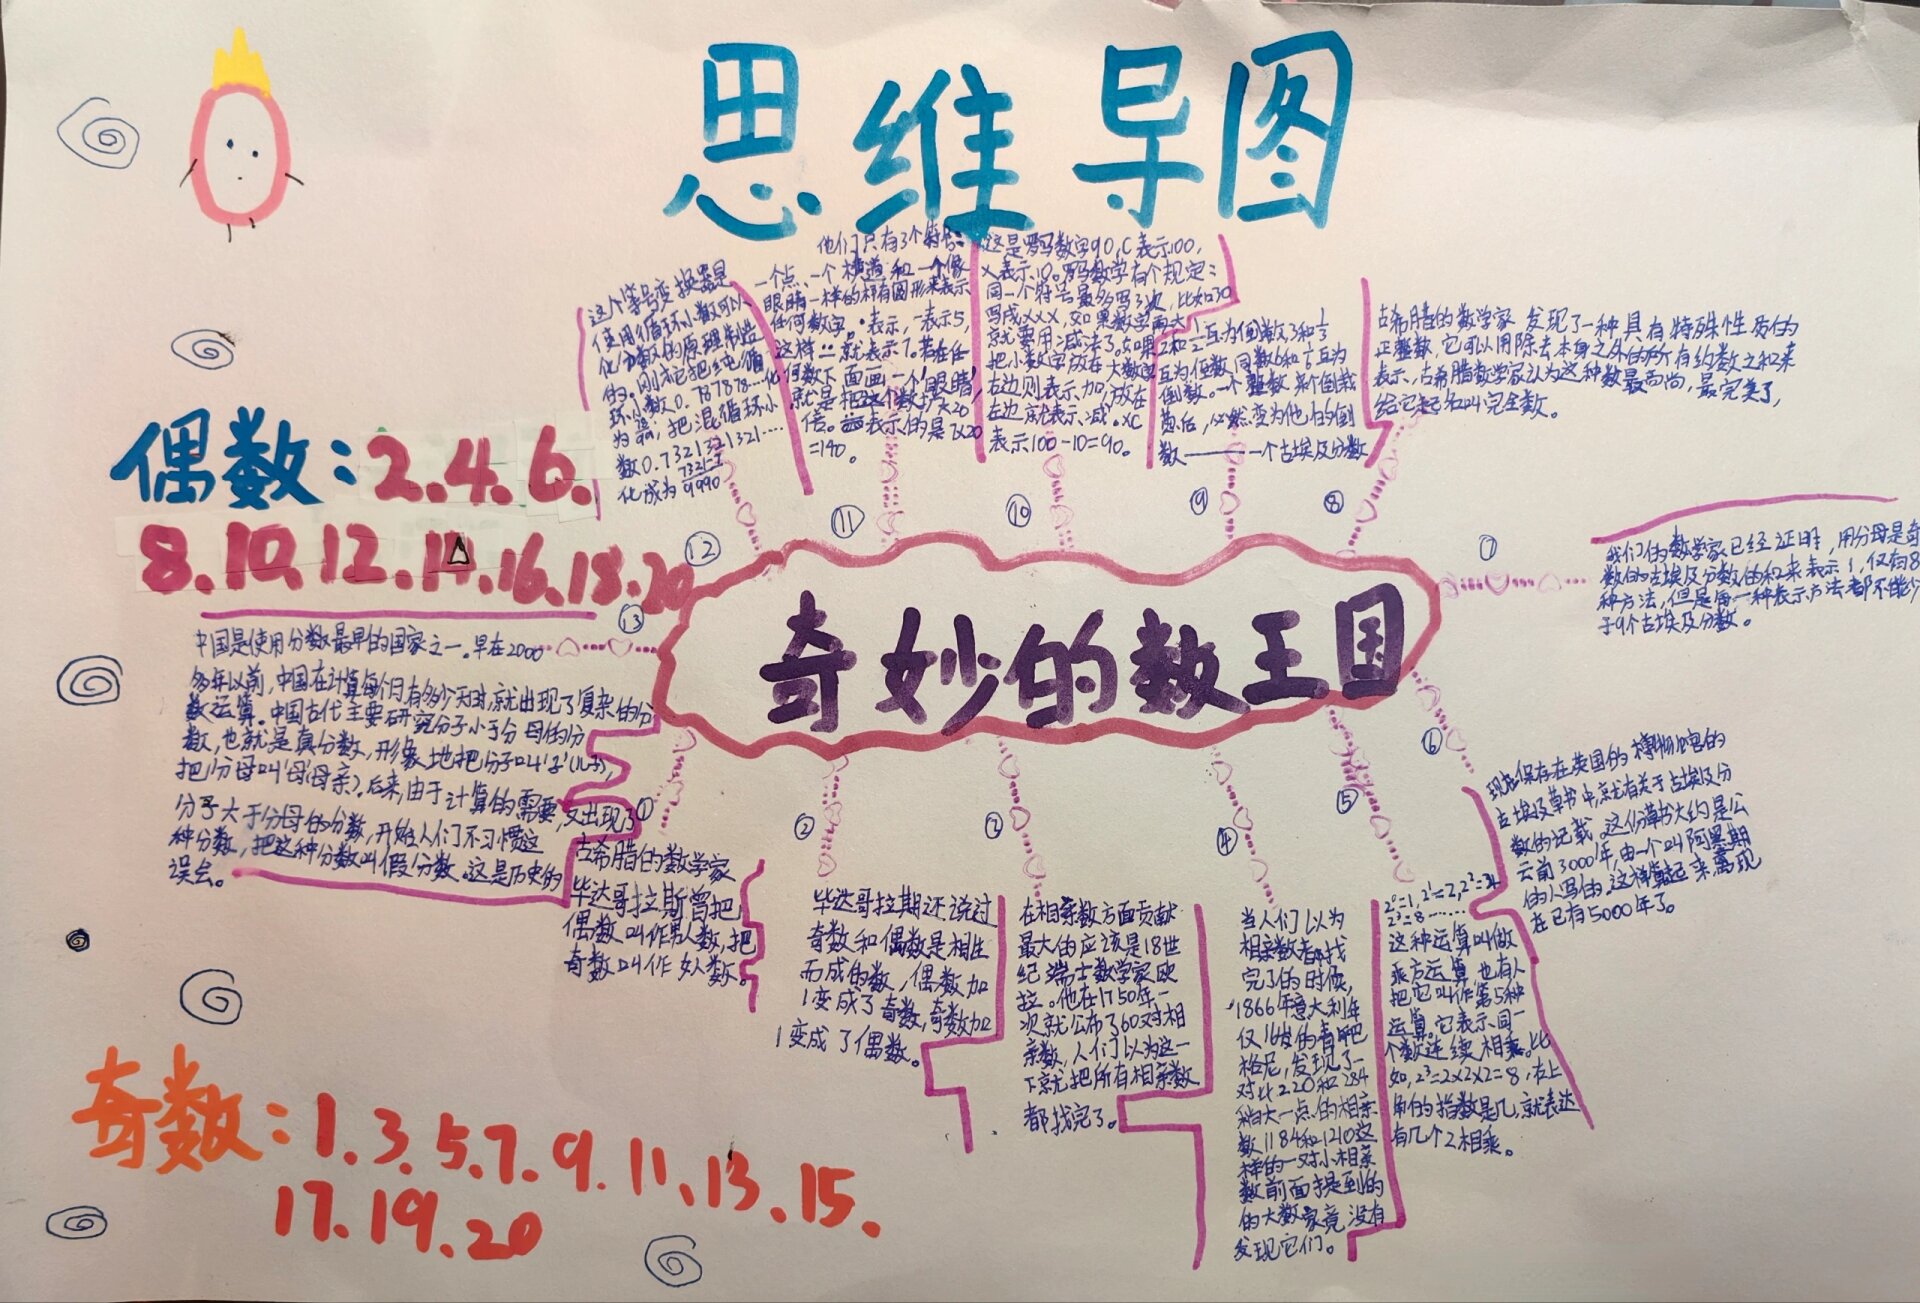 思维导图
奇妙的数王国
偶数：2.4.6.
8.10.12.14.16.18.20
奇数：1.3.5.7.9.11、13.15.
17.19.20
①
古希腊的数学家
毕达哥拉斯曾把
偶数叫作男人数，把
奇数叫作女人数。
②
毕达哥拉期还说过
奇数和偶数是相生
而成的数，偶数加
1变成了奇数，奇数加
1变成了偶数。
③
在相亲数方面贡献
最大的应该是18世
纪瑞士数学家欧
拉。他在1750年一
次就公布了60对相
亲数，人们以为这一
下就把所有相亲数
都找完了。
④
当人们以为
相亲数都找
完了的时候，
1866年意大利年
仅16岁的青
格尼，发现了一
对比220和284
稍大一点的相亲
数1184和1210这
样的一对小相亲
数前面提到的
的大数家竟没有
发现它们。
⑤
2⁰=1，2¹=2，2²=4
2³=8……
这种运算叫做
乘方运算，也有人
把它叫作第5种
运算。它表示同一
个数连续相乘。比
如，2³=2×2×2=8，右上
角的指数是几，就表达
有几个2相乘。
⑥
现在保存在英国的博物馆的
古埃及草书中，就有关于古埃及分
数的记载。这份草书大约是公
元前3000年，由一个叫阿黑
的人写的，这样算起来离现
在已有5000年了。
我们的数学家已经证明，用分母是奇
数的古埃及分数的和来表示1，仅有8
种方法，但是每一种表示方法都不能少
于9个古埃及分数。
⑧
古希腊的数学家发现了一种具有特殊性质的
正整数，它可以用除去本身之外的所有约数之和来
表示、古希腊数学家认为这种数最高尚，最完美了，
给它起名叫完全数。
⑨
2和1/2互为倒数，3和1/3
互为倒数，同数6和1/6互为
倒数。一个整数，来个倒栽
葱后，必然变为他的倒
数——一个古埃及分数
⑩
这是罗马数字90，C表示100，
X表示10。罗马数学有个规定：
同一个符号最多写3次，比如30
写成XXX，如果数字再大
就要用减法了。如果
把小数字放在大数字
右边则表示加，放在
左边就表示减。XC
表示100-10=90。
⑪
他们只有3个符号：
一个点、一个横道和一个像
眼睛一样的椭圆形来表示
任何数字。·表示1，一表示5，
这样 就表示7。若在任
何数下面画一个“眼睛”
就是把这个数扩大20
倍。 表示的是7×20
=140。
⑫
这个等号变换器是
使用循环小数可以
化为分数的原理制造
的。刚才它把纯循
环小数0.787878…化
为78/99，把混循环小
数0.7321321321……
化成为7321-7/9990
⑬
中国是使用分数最早的国家之一。早在2000
多年以前，中国在计算每个月有多少天时，就出现了复杂的分
数运算。中国古代主要研究分子小于分母的分
数，也就是真分数，形象地把分子叫‘子’（儿子），
把分母叫‘母’（母亲）。后来，由于计算的需要，又出现了
分子大于分母的分数，开始人们不习惯这
种分数，把这种分数叫假分数。这是历史的
误会。